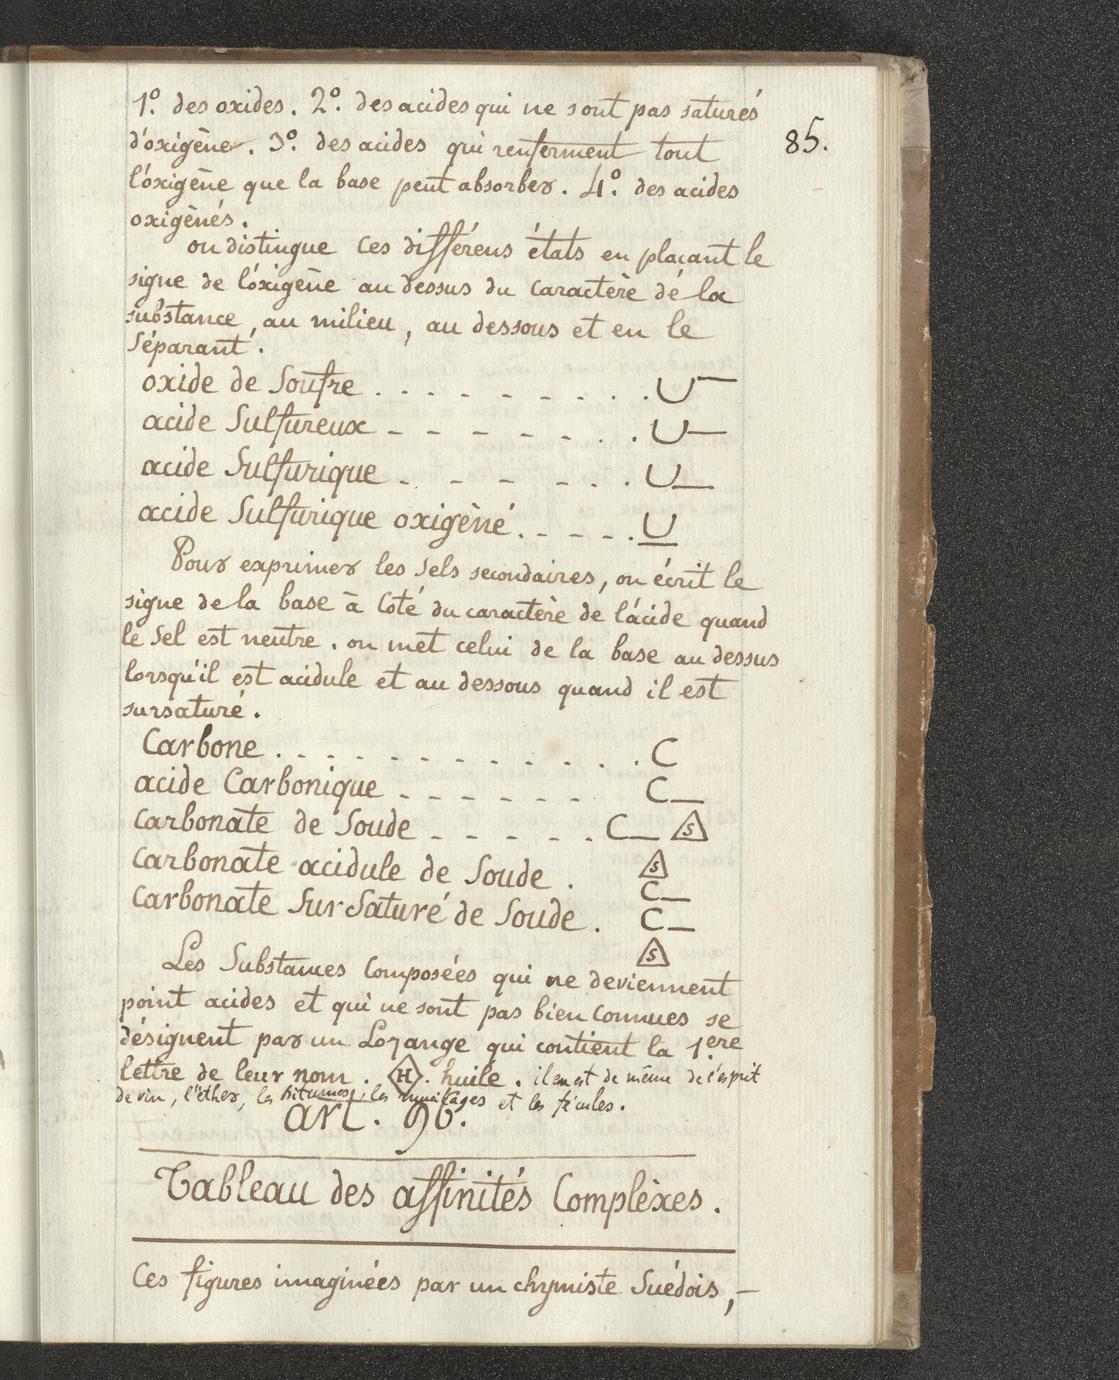 85.
1º. des oxides. 2º. des acides qui ne sont pas saturés
d'oxigène. 3º. des acides qui renferment tout
l'óxigène que la base peut absorber. 4º. des acides
oxigènés.
on distingue ces différens états en plaçant le
signe de l'óxigène au dessus du caractère de la
substance, au milieu, au dessous et en le
séparant.
oxide de Soufre . . . . . . . . . . U‾
acide Sulfureux - - - - - - . . . U—
acide Sulfurique - - - - - - . . U_
acide Sulfurique oxigèné . - - - . U
Pour exprimer les sels secondaires, on écrit le
signe de la base à Coté du caractère de l'ácide quand
le sel est neutre. on met celui de la base au dessus
lorsqu'il est acidule et au dessous quand il est
sursaturé.
Carbone . . . . . . . . . . . . . C
acide Carbonique - - - - - - - C_
Carbonate de Soude - - - - - . C— S
carbonate acidule de Soude . S C_
carbonate Sur-Saturé de Soude . C_ S
Les Substances Composées qui ne deviennent
point acides et qui ne sont pas bien Connues se
désignent par un Lozange qui contient la 1ere
lettre de leur nom. H. huile. il en est de même de l'esprit
de vin, l'éther, les bitumes, les mucilages et les fécules.
art. 96.
Tableau des affinités Complèxes.
Ces figures imaginées par un chymiste Suédois,-